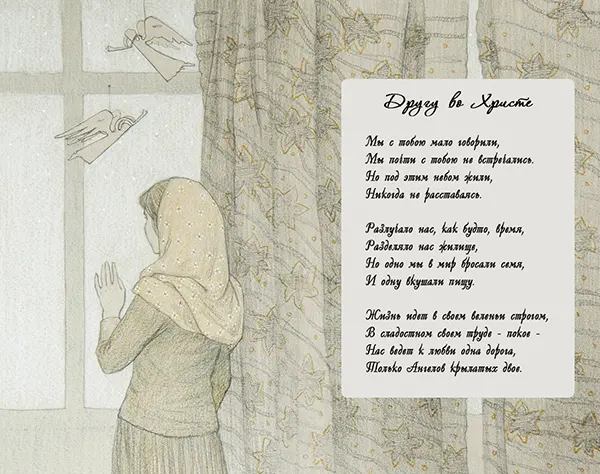 Другу во Христе
Мы с тобою мало говорили,
Мы почти с тобою не встречались.
Но под этим небом жили,
Никогда не расставаясь.
Разлучало нас, как будто, время,
Разделяло нас жилище,
Но одно мы в мир бросали семя,
И одну вкушали пищу.
Жизнь идет в своем веленьи строгом,
В сладостном своем труде - покое -
Нас ведет к любви одна дорога,
Только Ангелов крылатых двое.